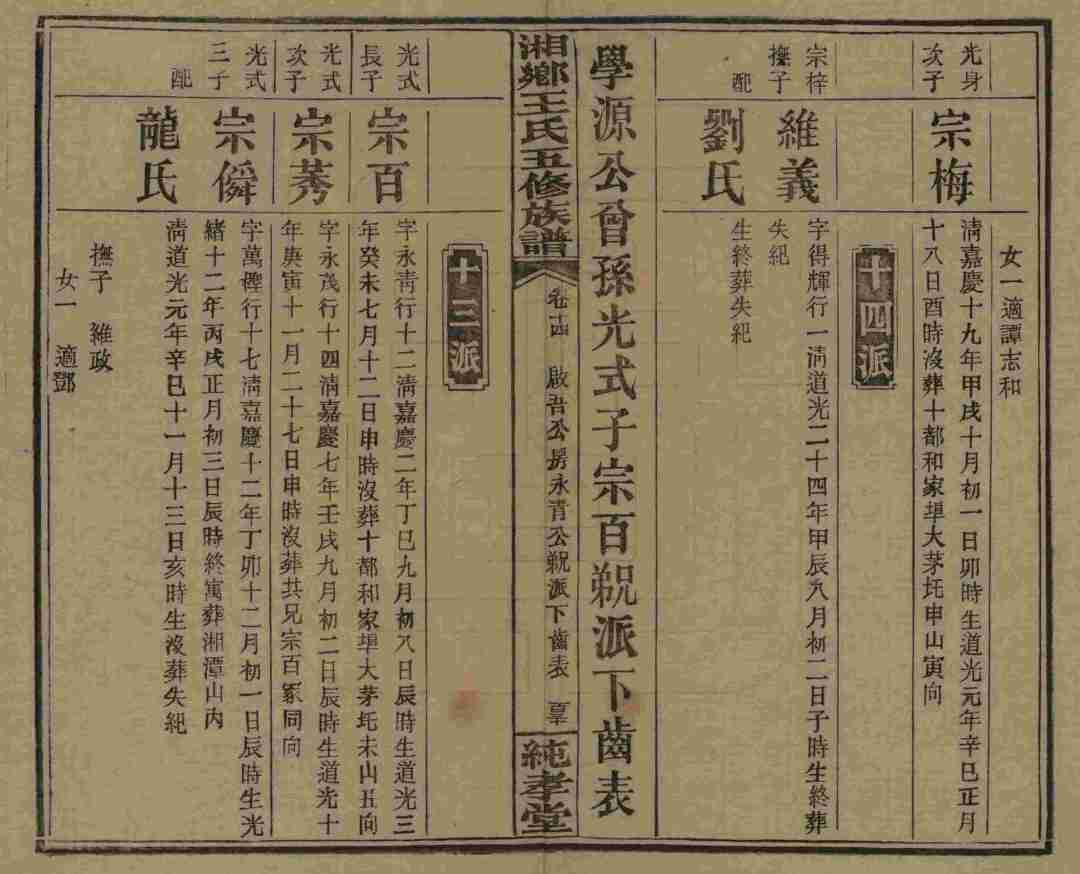 女一適譚志和
光身
次子
宗梅
淸嘉慶十九年甲戌十月初一日卯時生道光元年辛巳正月
十八日酉時沒葬十都和家埧大茅圫申山寅向
十四派
宗梓
撫子
維義
字得輝行一淸道光二十四年甲辰八月初二日子時生終葬
失紀
配
劉氏
生終葬失紀
學源公曾孫光式子宗百䫀派下齒表
湘鄉王氏五修族譜
卷十四
啟吾公房永青公䫀派下齒表
純孝堂
十三派
光式
長子
宗百
字永靑行十二淸嘉慶二年丁巳九月初八日辰時生道光三
年癸未七月十二日申時沒葬十都和家埧大茅圫未山丑向
光式
次子
宗莠
字永茂行十四淸嘉慶七年壬戌九月初二日辰時生道光十
年庚寅十一月二十七日申時沒葬共兄宗百冢同向
光式
三子
宗僢
字萬樫行十七淸嘉慶十二年丁卯十二月初一日辰時生光
緒十二年丙戌正月初三日辰時終寓葬湘潭山內
配
龍氏
淸道光元年辛巳十一月十三日亥時生沒葬失紀
撫子 維政
女一 適鄧